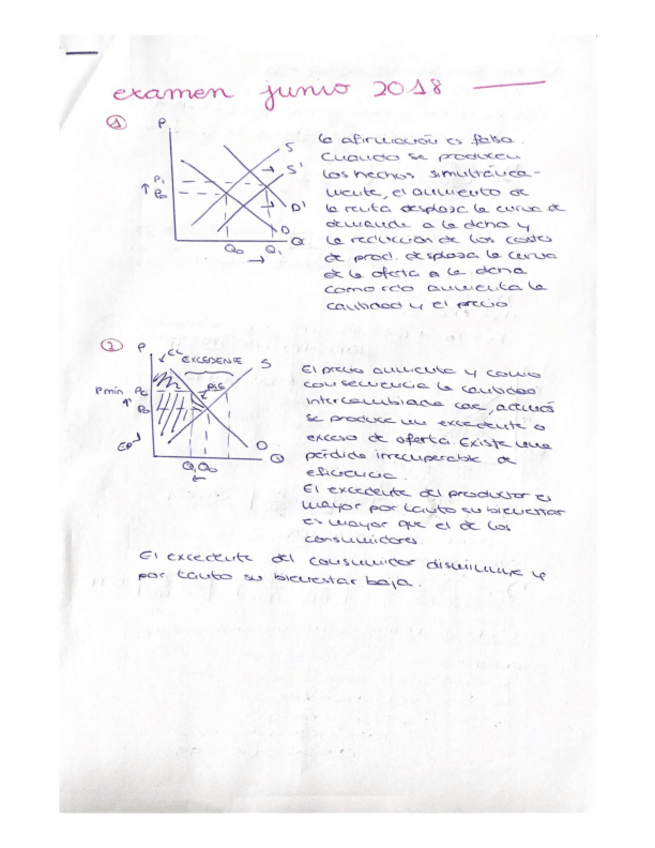 examen junio 2018
1
P
S
S'
P1
P0
D'
D
Q
Q0 Q1
la afirmación es falsa.
Cuando se producen
los hechos simultánea-
mente, el aumento de
la renta desplaza la curva de
demanda a la dcha y
la reducción de los costes
de prod. desplaza la curva
de la oferta a la dcha
como rdo aumenta la
cantidad y el precio.
2
P
EXCEDENTE
S
Pmin
P0
D
Q
Q1 Q0
El precio aumenta y como
consecuencia la cantidad
intercambiada cae, además
se produce un excedente o
exceso de oferta. Existe una
pérdida irrecuperable de
eficiencia.
El excedente del productor es
mayor por tanto su bienestar
es mayor que el de los
consumidores.
El excedente del consumidor disminuye y
por tanto su bienestar baja.